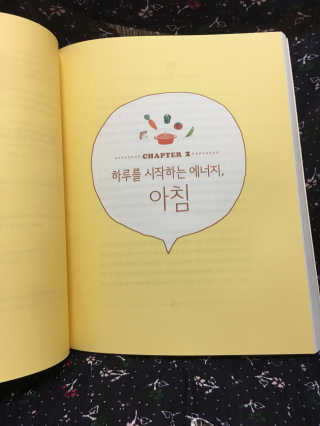 CHAPTER 2
하루를 시작하는 에너지,
아침